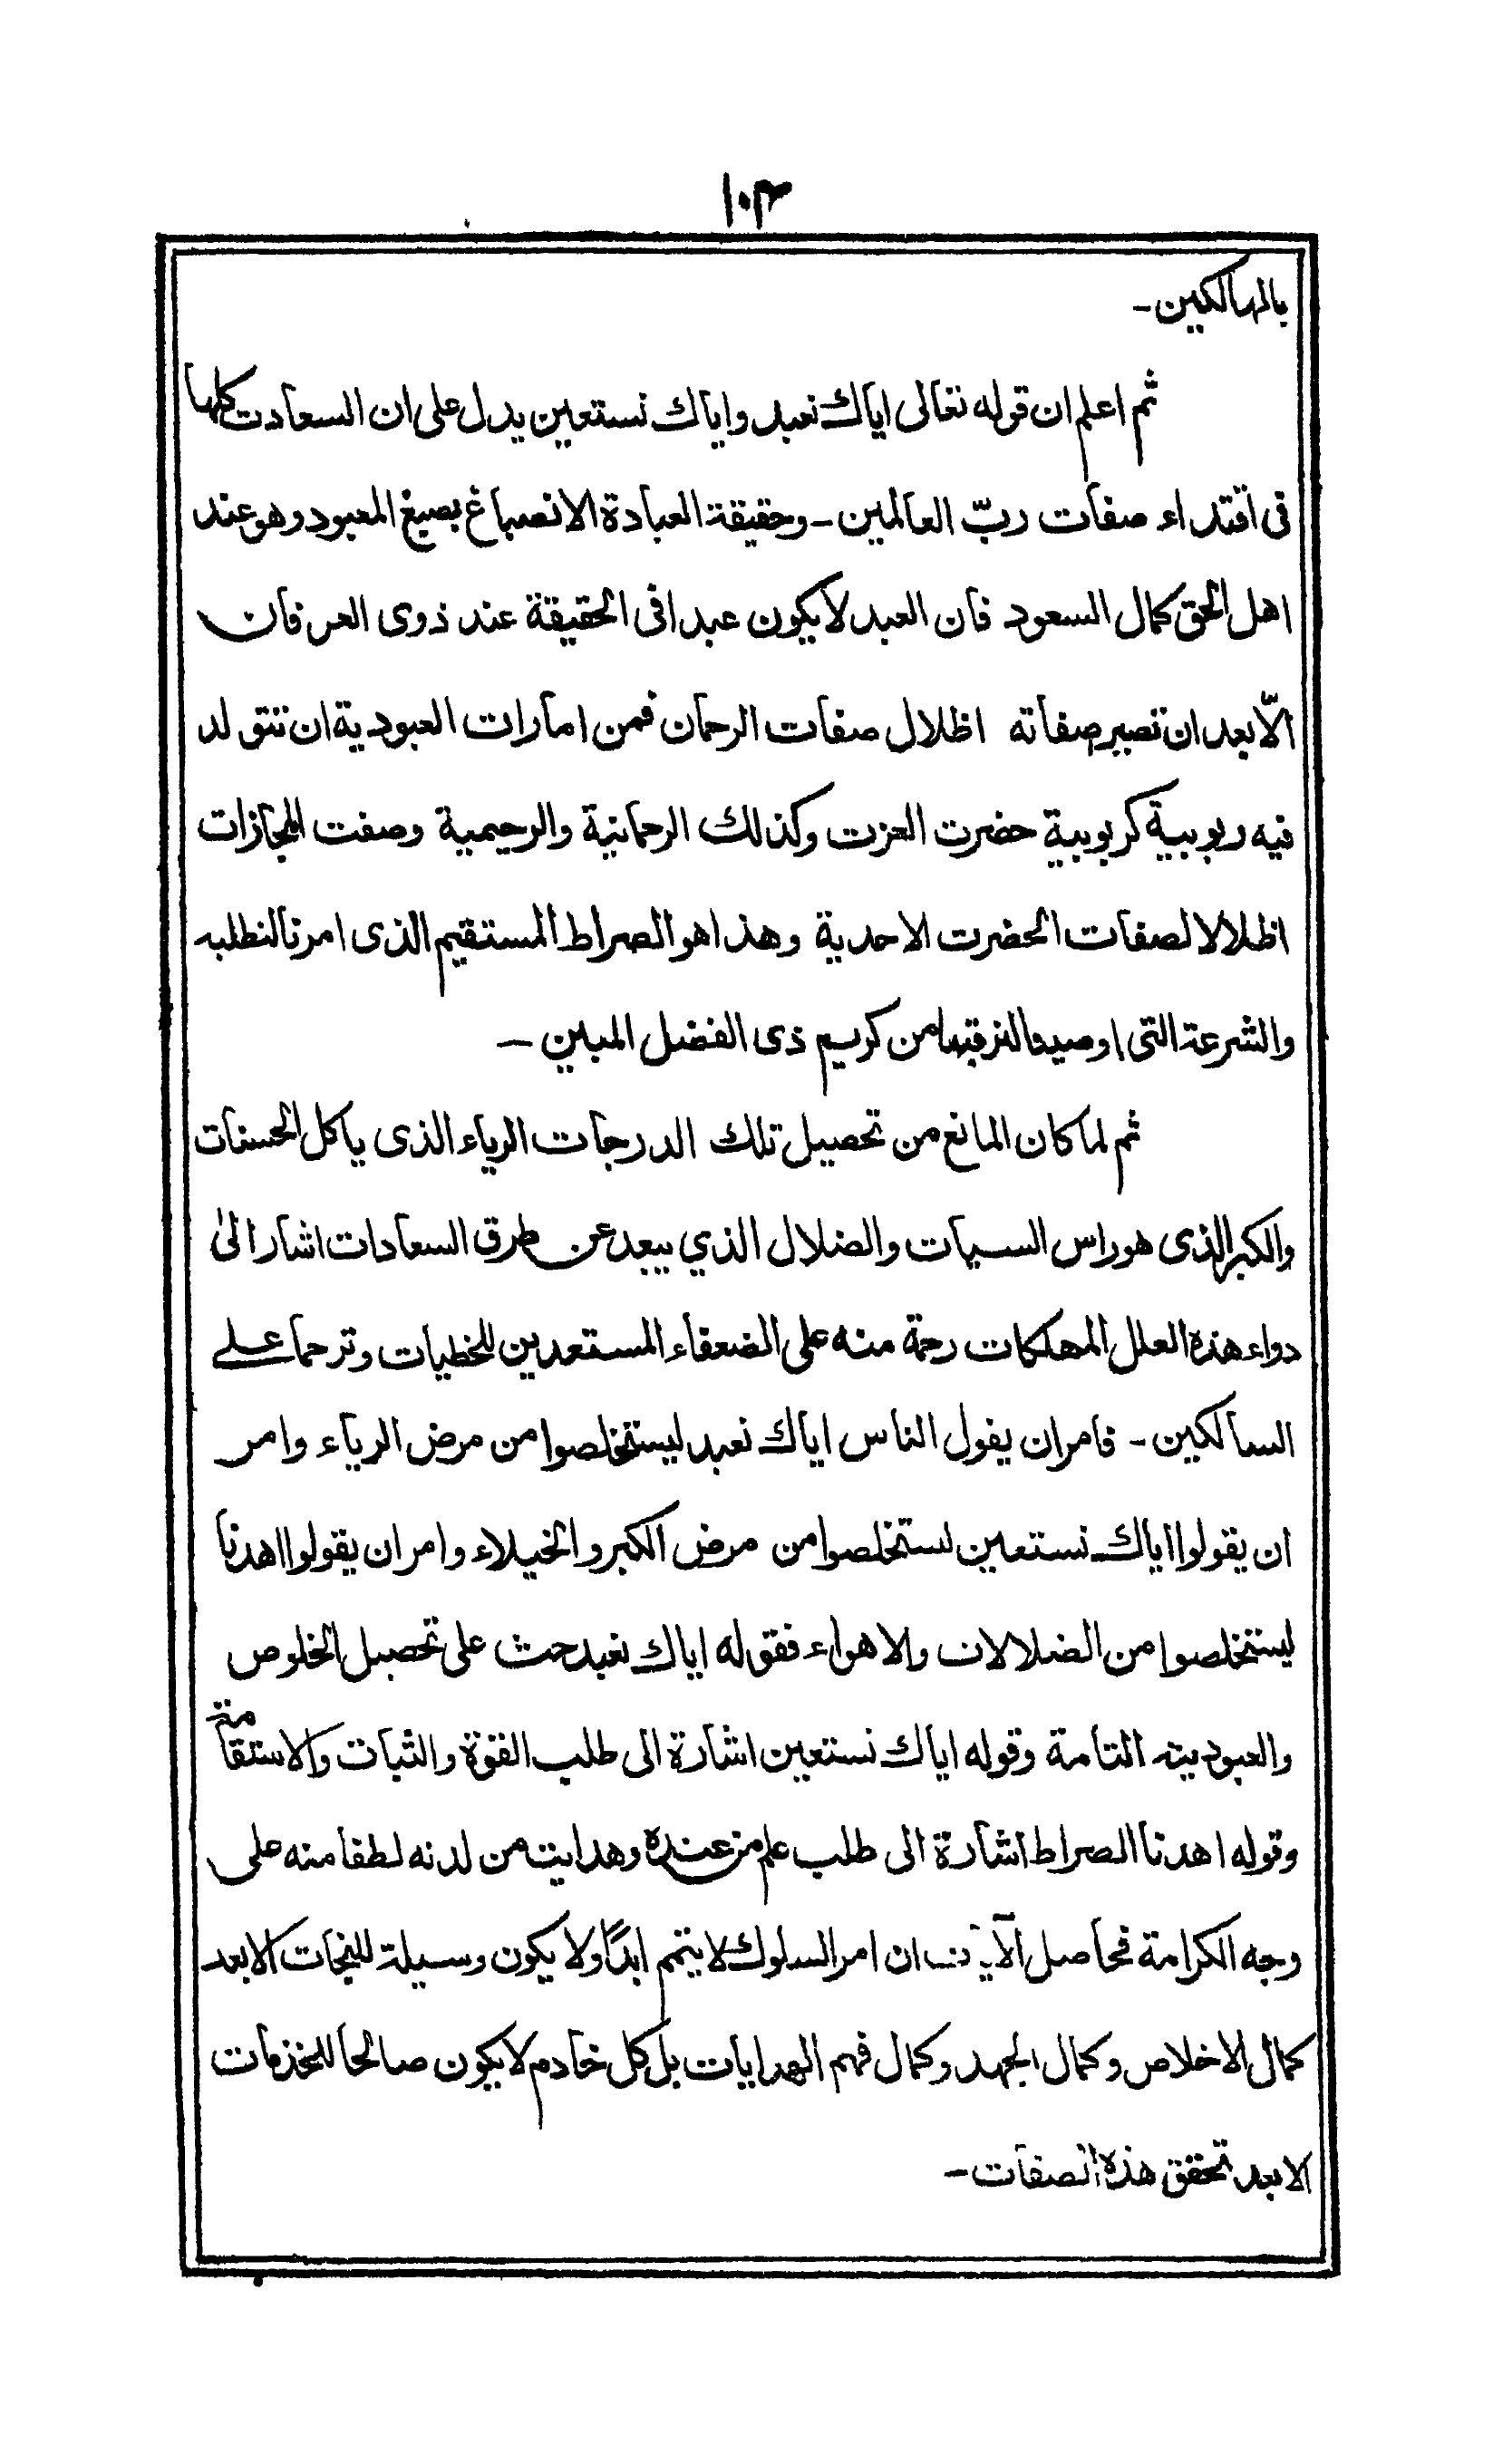 ١٠٣
بالهالكين-
ثم اعلم ان قوله تعالى اياك نعبد واياك نستعين يدل على ان السعادت كلها
فى اقتداء صفات ربّ العالمين-وحقيقة العبادة الانصباغ بصبغ المعبود وهو عند
اهل الحق كمال السعود فان العبد لايكون عبدا فى الحقيقة عند ذوى العرفان
الّا بعد ان تصير صفاته اظلال صفات الرحمان فمن امارات العبودية ان تتولد
فيه ربوبية كربوبية حضرت العزت وكذلك الرحمانية والرحيمية وصفت المجازات
اظلالا لصفات الحضرت الاحدية وهذا هو الصراط المستقيم الذى امرنا لنطلبه
والشرعة التى اوصينا لنرقبها من كريم ذى الفضل المبين-
ثم لما كان المانع من تحصيل تلك الدرجات الرياء الذى ياكل الحسنات
والكبر الذى هوراس السيات والضلال الذي يبعد عن طرق السعادات اشار الىٰ
دواء هذه العلل المهلكات رحمة منه على الضعفاء المستعدين للخطيات وترحما على
السالكين- فامر ان يقول الناس اياك نعبد ليستخلصوا من مرض الرياء وامر
ان يقولوا اياك نستعين ليستخلصوا من مرض الكبر والخيلاء وامر ان يقولوا اهدنا
ليستخلصوا من الضلالات والاهواء فقوله اياك نعبد حث على تحصيل الخلوص
والعبودية التامة وقوله اياك نستعين اشارة الى طلب القوة والثبات والاستقامة
وقوله اهدنا الصراط اشارة الى طلب علم من عنده وهدايت من لدنه لطفا منه على
وجه الكرامة فحاصل الآيات ان امر السلوك لا يتم ابدًا ولا يكون وسيلة للنجات الا بعد
كمال الاخلاص وكمال الجهد وكمال فهم الهدايات بل كل خادم لا يكون صالحا للخذمات
الا بعد تحقق هذه الصفات-